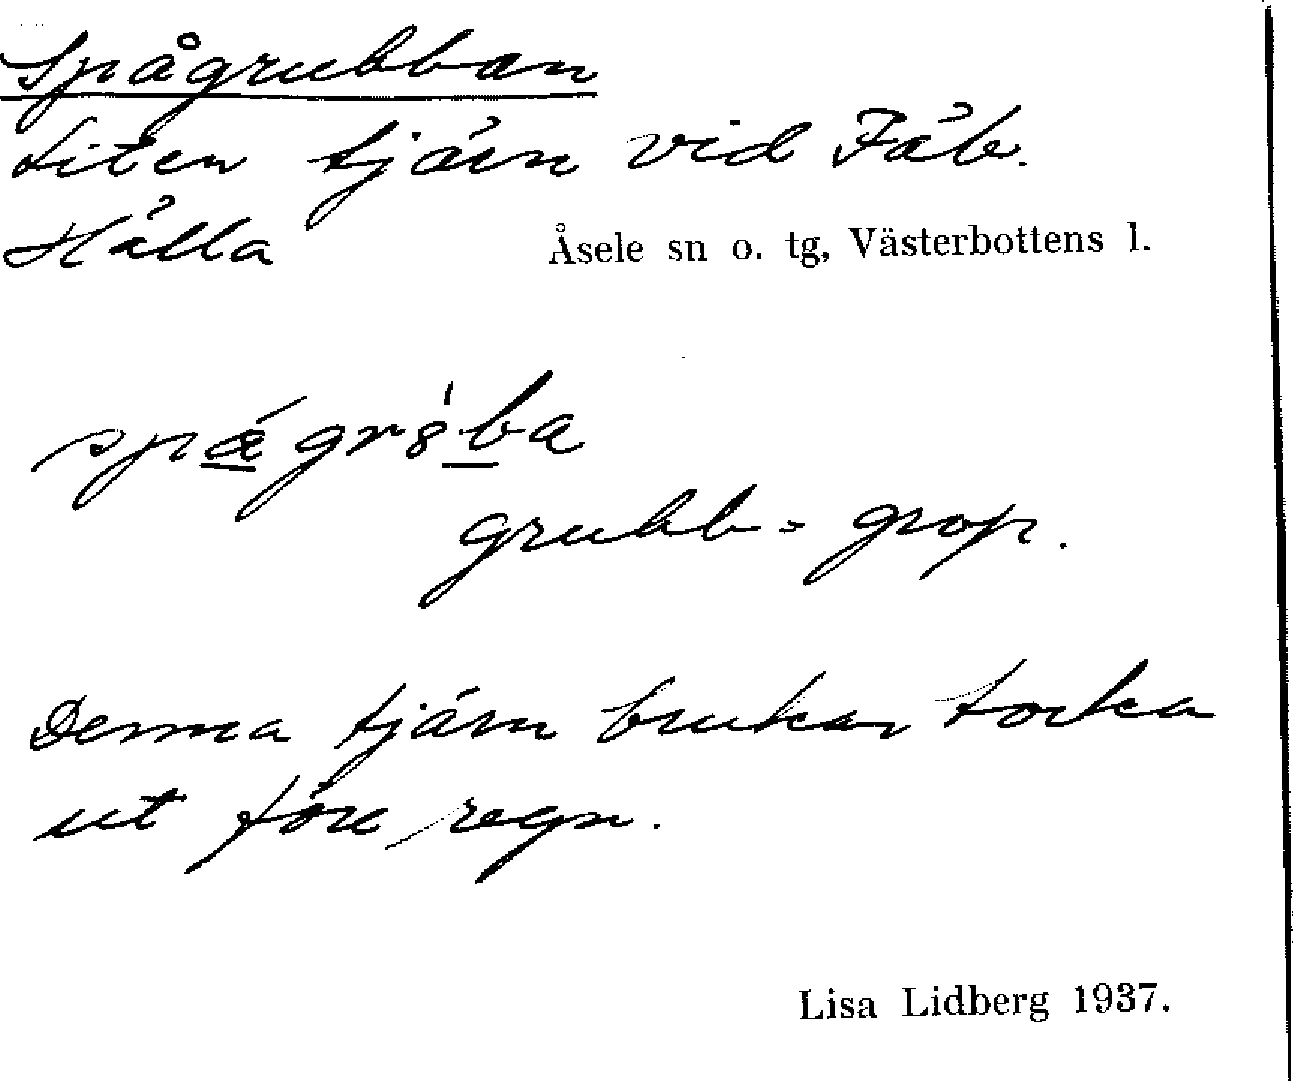 Spågrubban
Liten tjärn vid Fäb.
Hälla Åsele sn o. tg, Västerbottens l.
spǽgrȣ́ba
grubb = grop.
Denna tjärn brukar torka
ut före regn.
Lisa Lidberg 1937.